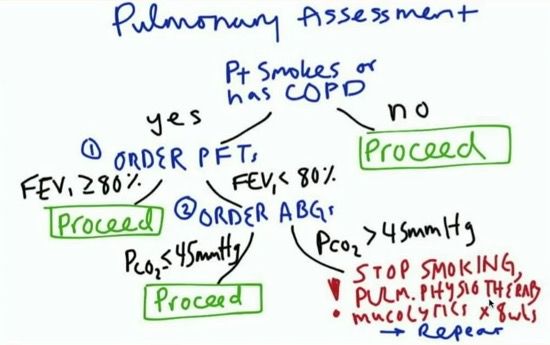 Pulmonary Assessment
Pt Smokes or
has COPD
yes
no
① ORDER PFTs
Proceed
FEV₁ ≥80%
FEV₁< 80%
Proceed
② ORDER ABGs
PCO₂≤45mmHg
PCO₂>45mmHg
Proceed
STOP SMOKING,
! PULM. PHYSIOTHERAPY
• mucolytics x 8wks
→ Repeat